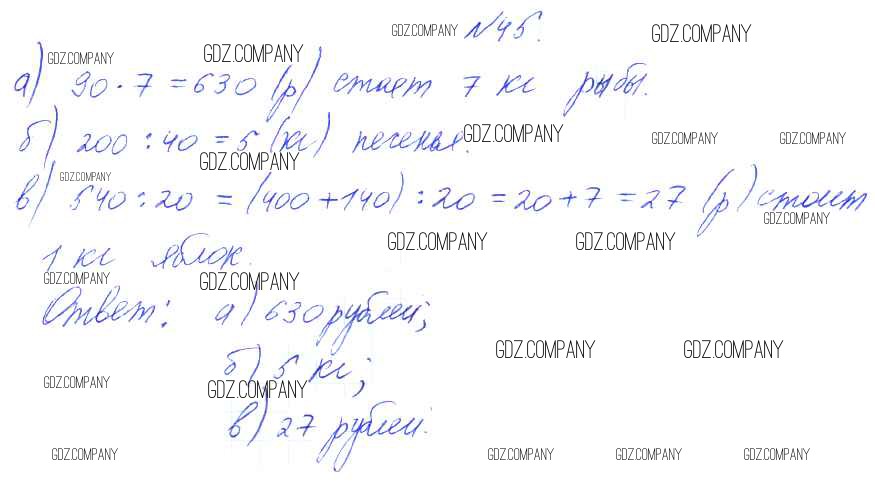 GDZ.COMPANY № 45. GDZ.COMPANY
GDZ.COMPANY GDZ.COMPANY
а) 90 · 7 = 630 (р) стоит 7 кг рыбы.
б) 200 : 40 = 5 (кг) печенья. GDZ.COMPANY GDZ.COMPANY GDZ.COMPANY
GDZ.COMPANY GDZ.COMPANY
в) 540 : 20 = (400 + 140) : 20 = 20 + 7 = 27 (р) стоит
GDZ.COMPANY
1 кг яблок. GDZ.COMPANY GDZ.COMPANY
GDZ.COMPANY GDZ.COMPANY
Ответ: а) 630 рублей;
GDZ.COMPANY GDZ.COMPANY
б) 5 кг;
GDZ.COMPANY GDZ.COMPANY
в) 27 рублей.
GDZ.COMPANY GDZ.COMPANY GDZ.COMPANY GDZ.COMPANY